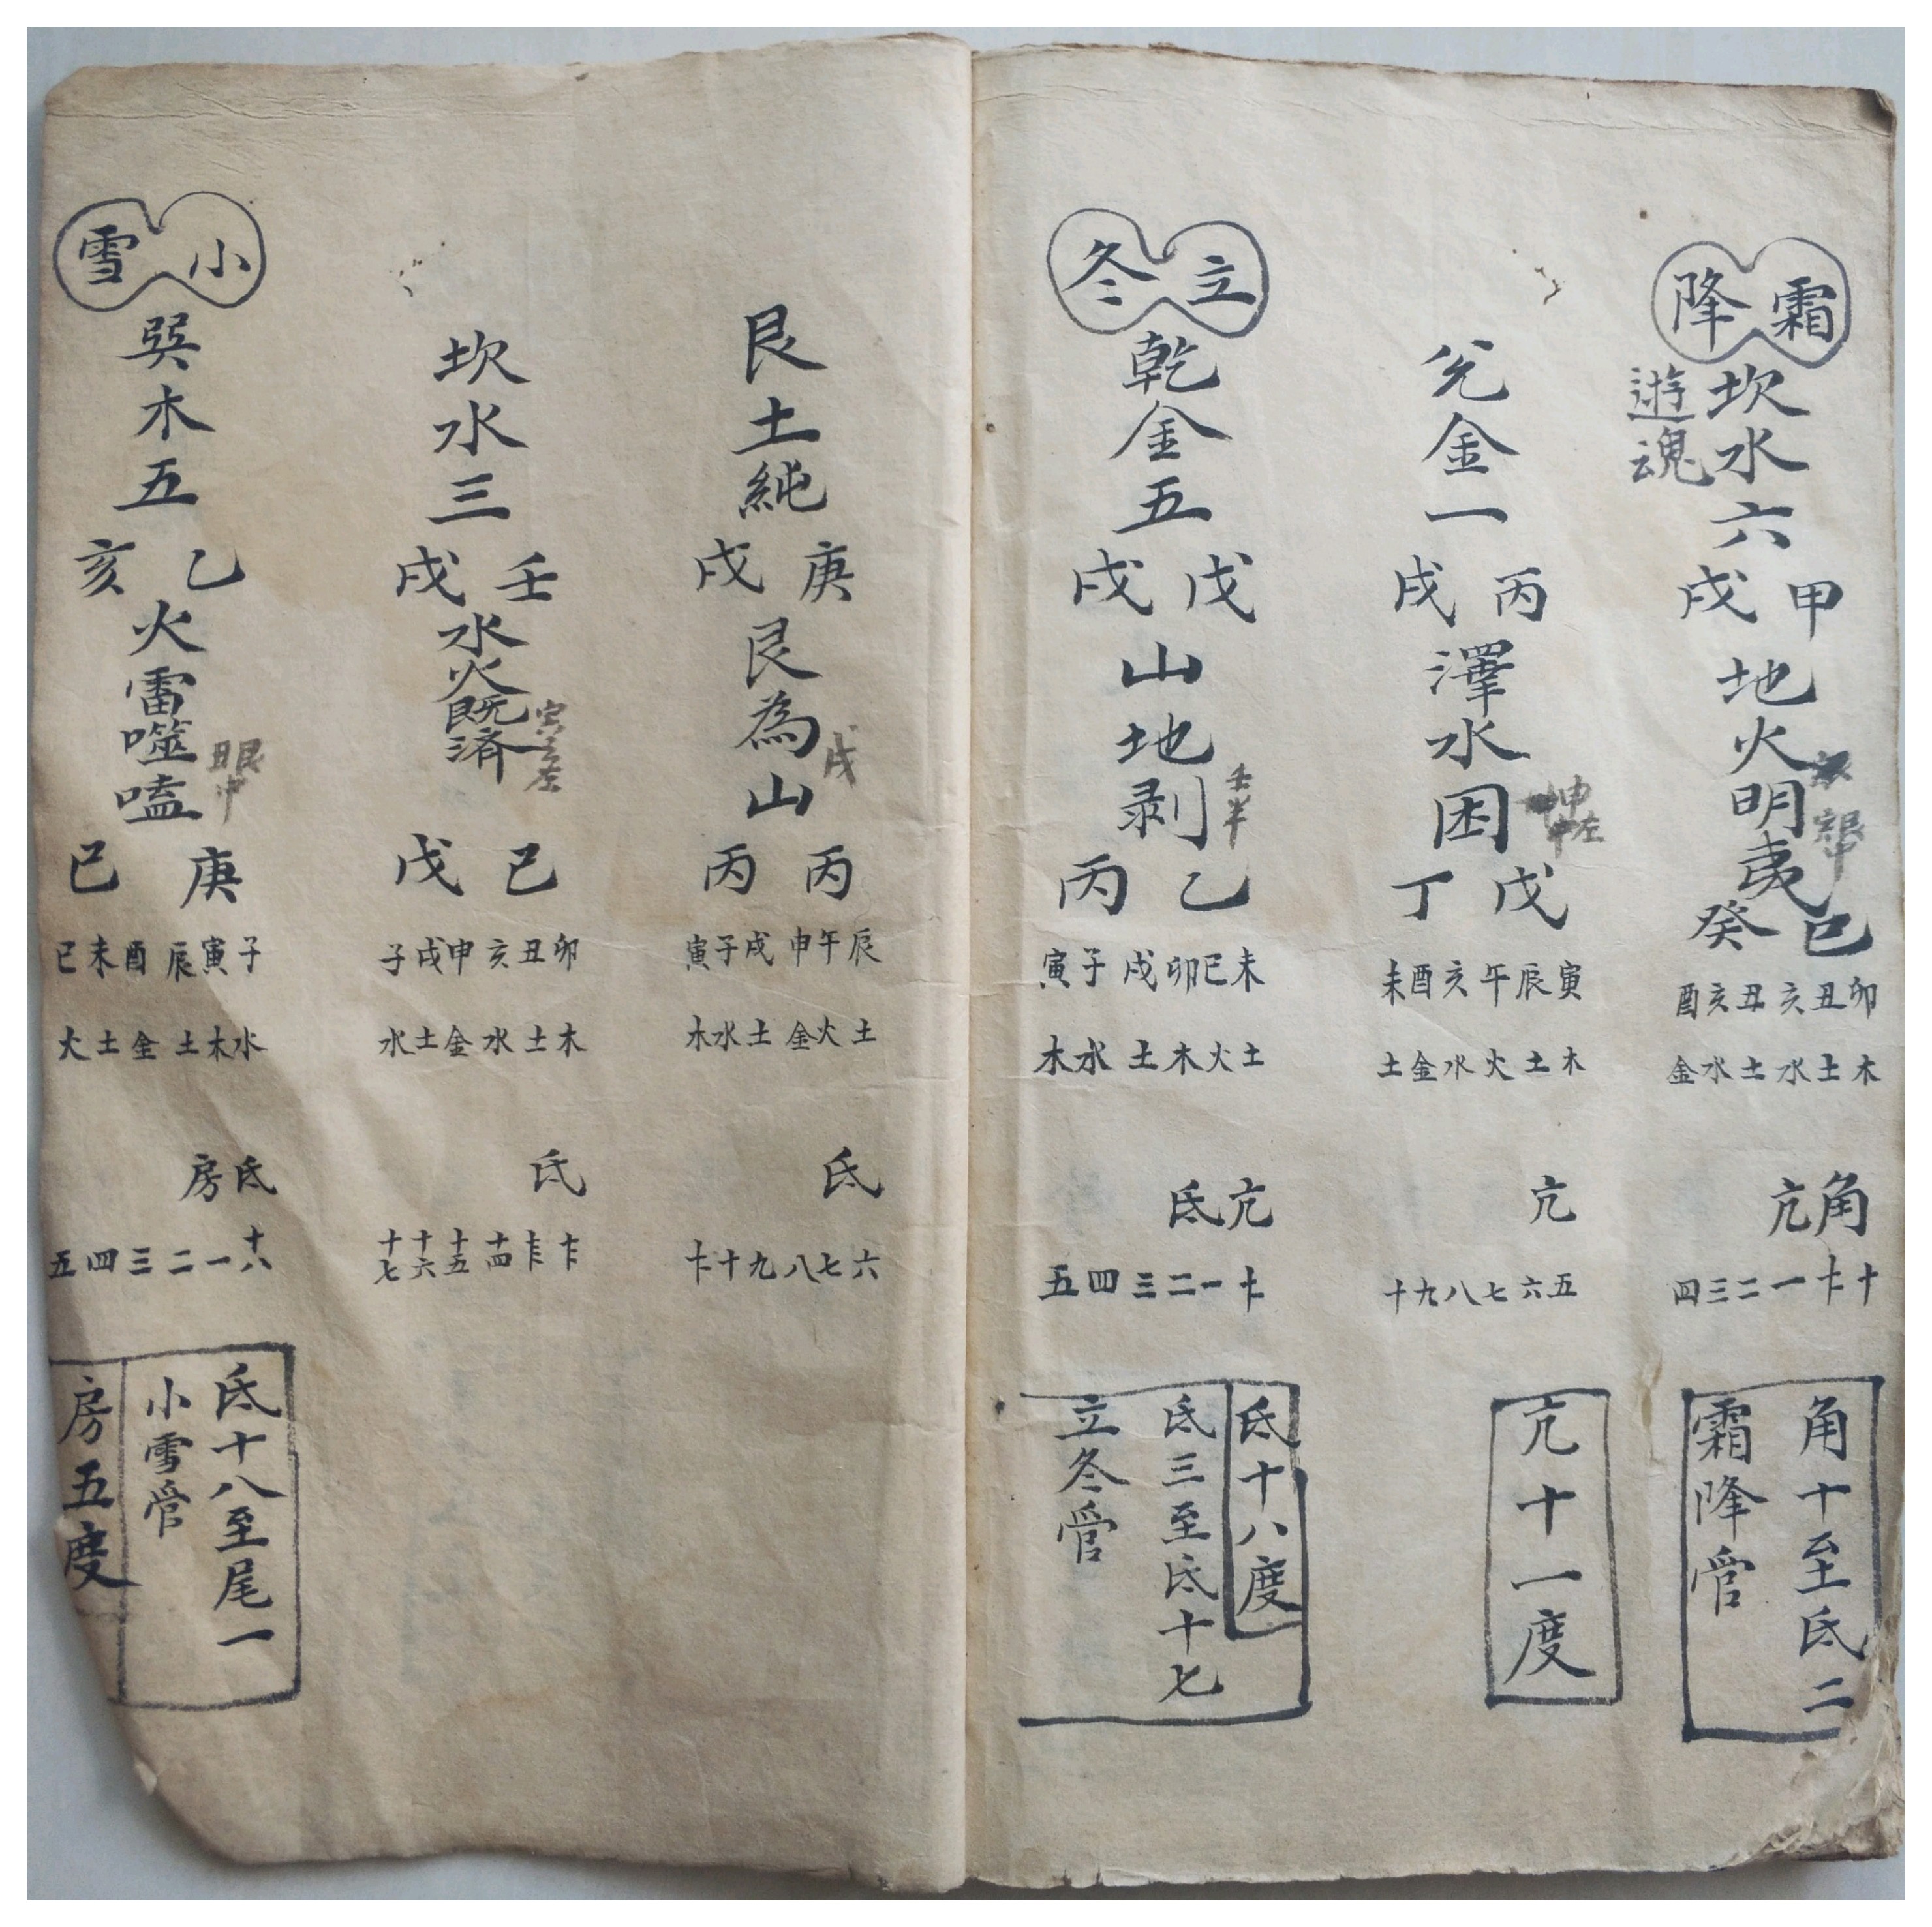 霜降
坎水六
遊魂
甲戌
地火明夷
己癸
卯丑亥丑亥酉
木土水土水金
角亢
十十一一二三四
角十至氐二
霜降管
兌金一
丙戌
澤水困
戊丁
寅辰午亥酉未
木土火水金土
亢
五六七八九十
亢十一度
立冬
乾金五
戊戌
山地剥
乙丙
未巳卯戌子寅
土火木土水木
亢氐
十一一二三四五
氐十八度
氐三至氐十七
立冬管
艮土純
庚戌
艮為山
戌
丙丙
辰午申戌子寅
土火金土水木
氐
六七八九十十一
坎水三
壬戌
水火既済
己戊
卯丑亥申戌子
木土水金土水
氐
十二十三十四十五十六十七
小雪
巽木五
乙亥
火雷噬嗑
庚己
子寅辰酉未巳
水木土金土火
氐房
十八一二三四五
氐十八至尾一
小雪管
房五度